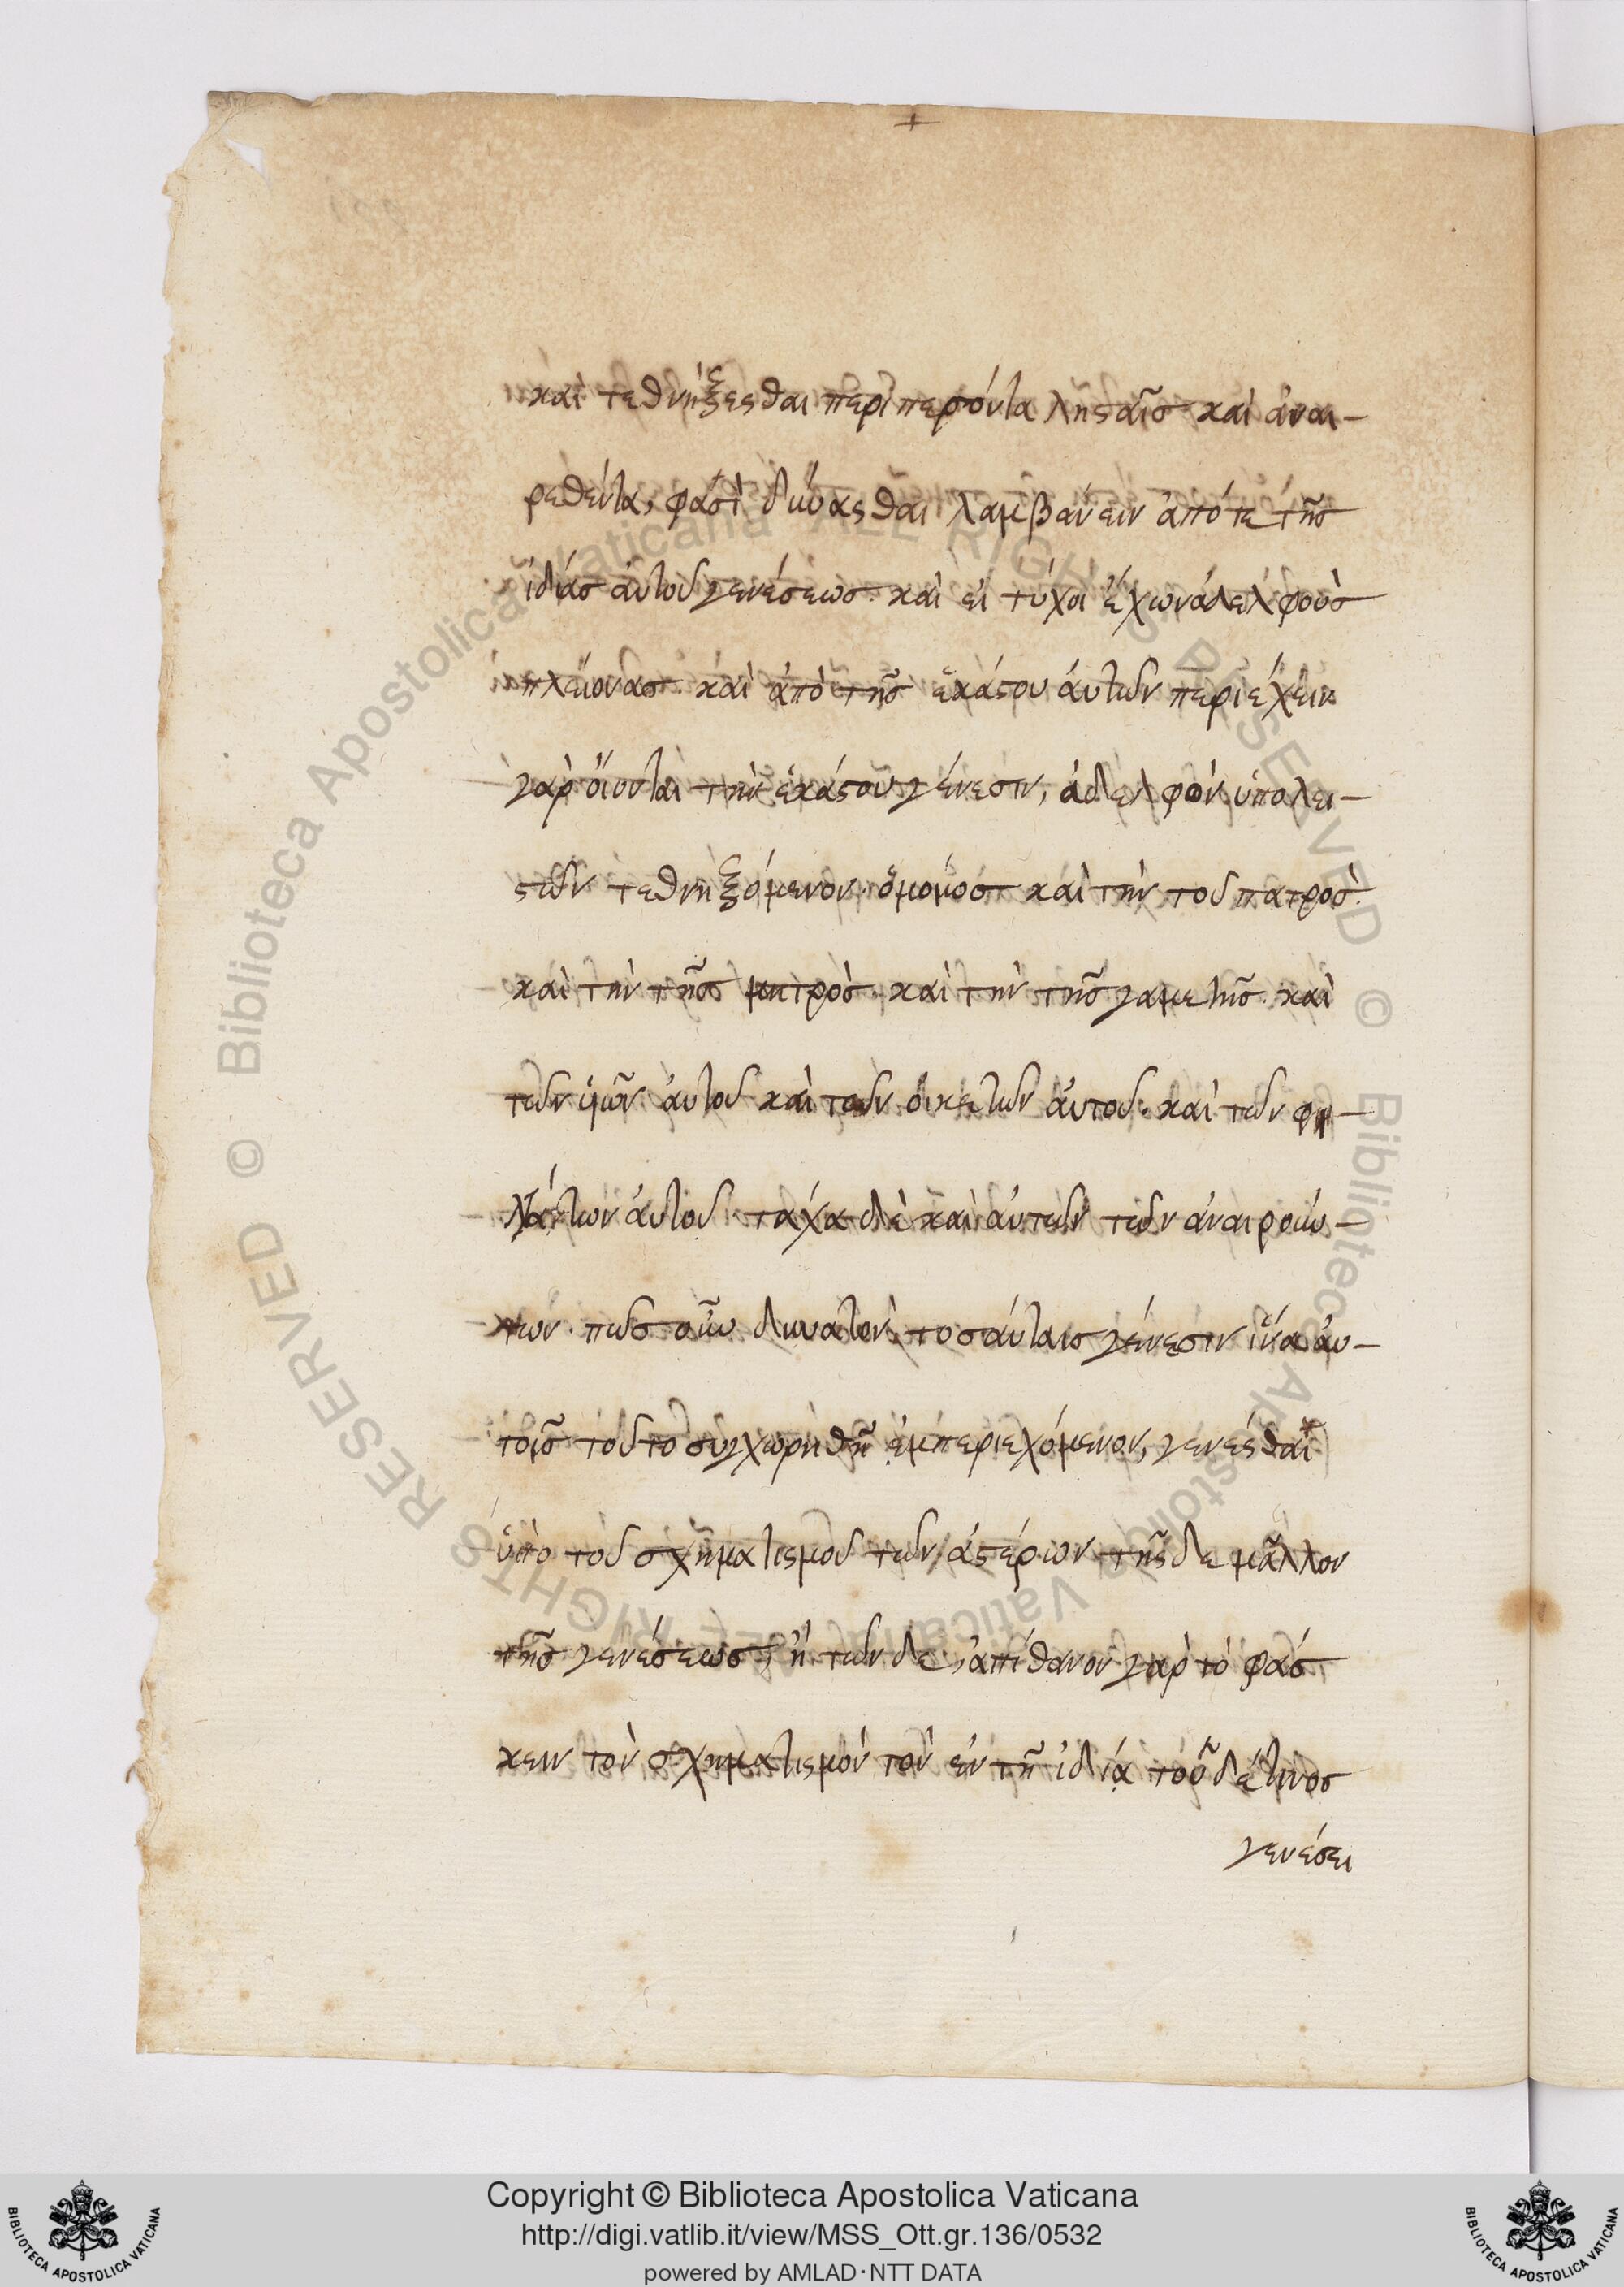 καὶ τεθνήξεσθαι περιπεσόντα λησταῖς καὶ ἀναι-
ρεθέντα, φασὶ δύνασθαι λαμβάνειν ἀπό τε τῆς
ἰδίας αὐτοῦ γενέσεως. καὶ εἰ τύχοι ἔχων ἀδελφοὺς
πλείονας. καὶ ἀπὸ τῆς ἑκάστου αὐτῶν περιέχειν
γὰρ οἴονται τὴν ἑκάστου γένεσιν, ἀδελφὸν ὑπὸ λει-
στῶν τεθνηξόμενον. ὁμοίως καὶ τὴν τοῦ πατρὸς.
καὶ τὴν τῆς μητρὸς. καὶ τὴν τῆς γαμετῆς. καὶ
τῶν υἱῶν αὐτοῦ καὶ τῶν οἰκετῶν αὐτοῦ. καὶ τῶν φη-
λτάτων αὐτοῦ. τάχα δὲ καὶ αὐτῶν τῶν ἀναιρούν-
των. πῶς οὖν δυνατὸν, τοσαύταις γένεσιν ἵνα αὐ-
τοῖς τοῦτο συγχωρηθῇ ἐμπεριεχόμενον, γενέσθαι
ὑπὸ τοῦ σχηματισμοῦ τῶν ἀστέρων τῆς δε μᾶλλον
τῆς γενέσεως, ἢ τῶν δε, ἀπίθανον γὰρ τὸ φάσ
κειν τὸν σχηματισμὸν τὸν ἐν τῇ ἰδίᾳ τοῦ δέ τινος
γενέσει
Copyright © Biblioteca Apostolica Vaticana
http://digi.vatlib.it/view/MSS_Ott.gr.136/0532
powered by AMLAD·NTT DATA
© Biblioteca Apostolica Vaticana ALL RIGHTS RESERVED © Biblioteca Apostolica Vaticana ALL RIGHTS RESERVED
BIBLIOTECA APOSTOLICA VATICANA
BIBLIOTECA APOSTOLICA VATICANA